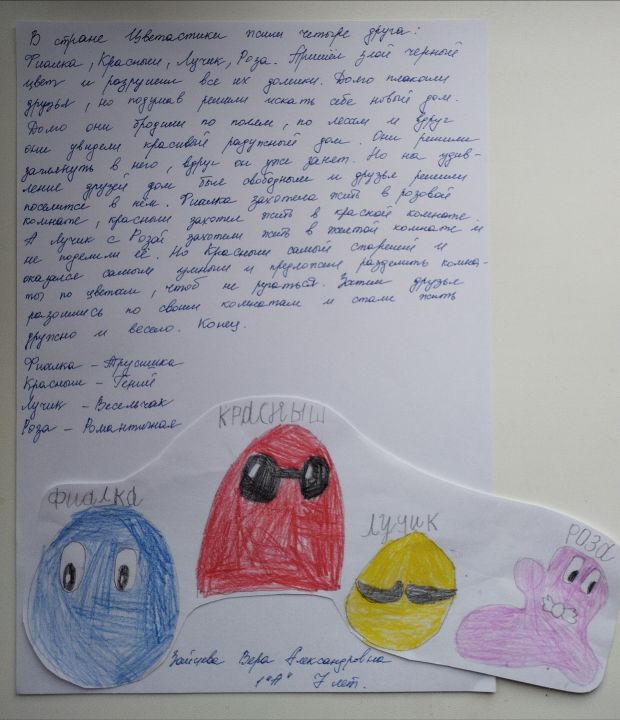 В стране Цветастики жили четыре друга:
Фиалка, Красныш, Лучик, Роза. Пришёл злой черный
цвет и разрушил все их домики. Долго плакали
друзья, но подумав решили искать себе новый дом.
Долго они бродили по полям, по лесам и вдруг
они увидели красивый радужный дом. Они решили
заглянуть в него, вдруг он уже занят. Но на удив-
ление друзей дом был свободным и друзья решили
поселится в нём. Фиалка захотела жить в розовой
комнате, красныш захотел жить в красной комнате.
А Лучик с Розой захотели жить в желтой комнате и
не поделили её. Но Красныш самый старший и
оказался самым умным и предложил разделить комна-
ты по цветам, чтоб не ругаться. Затем друзья
разошлись по своим комнатам и стали жить
дружно и весело. Конец.
Фиалка - Трусишка
Красныш - Гений
Лучик - Весельчак
Роза - Романтичная
КРАСНЫШ
ФИАЛКА
ЛУЧИК
РОЗА
Зайцева Вера Александровна
1"А" 7 лет.